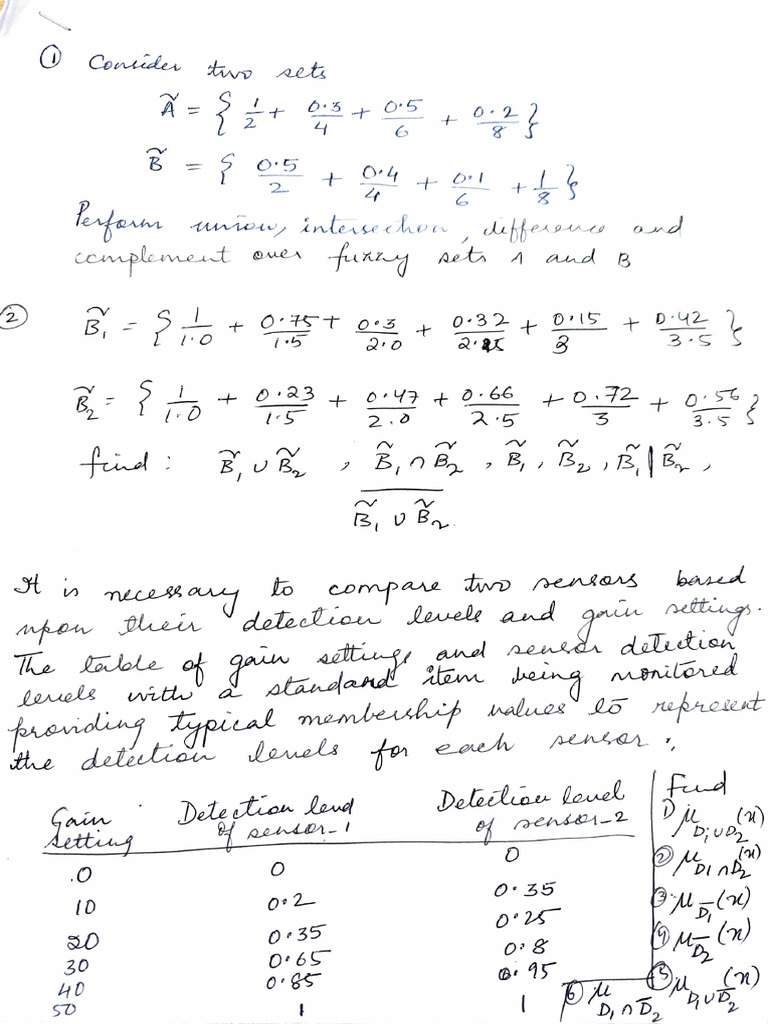 ① Consider two sets
Ã = { 1/2 + 0.3/4 + 0.5/6 + 0.2/8 }
B̃ = { 0.5/2 + 0.4/4 + 0.1/6 + 1/8 }
Perform union, intersection, difference and
complement over fuzzy sets A and B
② B̃₁ = { 1/1.0 + 0.75/1.5 + 0.3/2.0 + 0.32/2.5 + 0.15/3 + 0.42/3.5 }
B̃₂ = { 1/1.0 + 0.23/1.5 + 0.47/2.0 + 0.66/2.5 + 0.72/3 + 0.56/3.5 }
find : B̃₁ ∪ B̃₂ , B̃₁ ∩ B̃₂ , B̃₁ , B̃₂ , B̃₁ | B̃₂ ,
B̃₁ ∪ B̃₂
It is necessary to compare two sensors based
upon their detection levels and gain settings.
The table of gain settings and sensor detection
levels with a standard item being monitored
providing typical membership values to represent
the detection levels for each sensor :
Gain setting Detection level of sensor-1 Detection level of sensor-2 Find
① μ D₁∪D₂ (x)
0 0 0
② μ D₁∩D₂ (x)
10 0.2 0.35
③ μ D̄₁ (x)
20 0.35 0.25
④ μ D̄₂ (x)
30 0.65 0.8
40 0.85 0.95
⑤ μ D₁∪D̄₂ (x)
50 1 1
⑥ μ D₁∩D̄₂